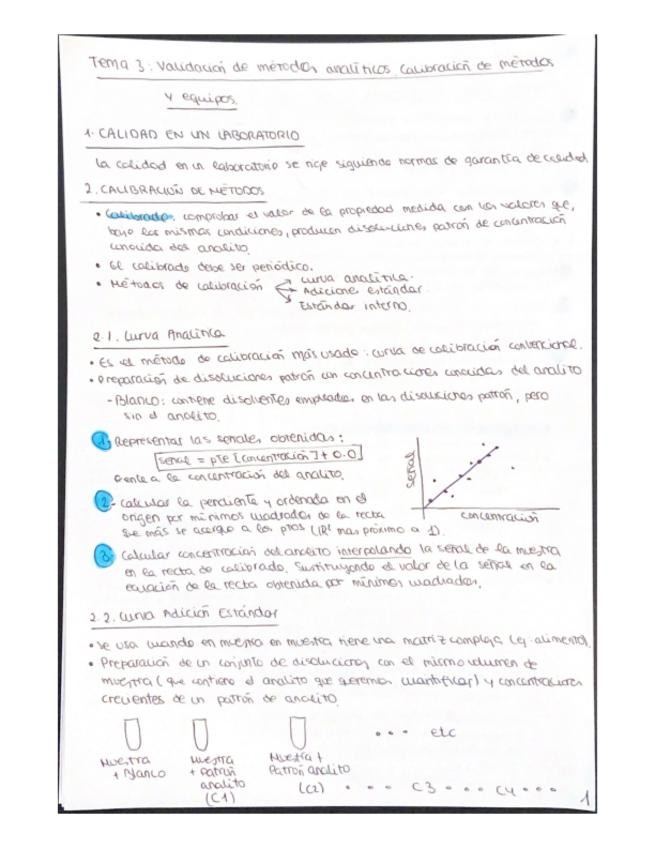 Tema 3: Validación de métodos analíticos. Calibración de métodos
y equipos.
1. CALIDAD EN UN LABORATORIO
La calidad en un laboratorio se rige siguiendo normas de garantía de calidad
2. CALIBRACIÓN DE MÉTODOS
• Calibrado: comprobar el valor de la propiedad medida con los valores que,
bajo las mismas condiciones, producen disoluciones patrón de concentración
conocida del analito.
• El calibrado debe ser periódico.
• Métodos de calibración
curva analítica.
Adicione estándar
Estándar interno.
2.1. Curva Analítica
• Es el método de calibración más usado: curva de calibración convencional.
• Preparación de disoluciones patrón con concentraciones conocidas del analito
- Blanco: contiene disolventes empleados en las disoluciones patrón, pero
sin el analito.
1. Representar las señales obtenidas:
señal = pte [concentración] + o.o
frente a la concentración del analito.
señal
concentración
2.- Calcular la pendiente y ordenada en el
origen por mínimos cuadrados de la recta
que más se acerque a los ptos (R² mas próximo a 1).
3. Calcular concentración del analito interpolando la señal de la muestra
en la recta de calibrado. Sustituyendo el valor de la señal en la
ecuación de la recta obtenida por mínimos cuadrados.
2.2. Curva Adición Estándar
• Se usa cuando en muestra tiene una matriz compleja (ej: alimentos).
• Preparación de un conjunto de disoluciones con el mismo volumen de
muestra (que contiene el analito que queremos cuantificar) y concentraciones
crecientes de un patrón de analito.
... etc
Muestra
+ Blanco
Muestra
+ Patrón
analito
(C1)
Muestra +
Patrón analito
(C2) • • • C3 • • • C4 • • •
1